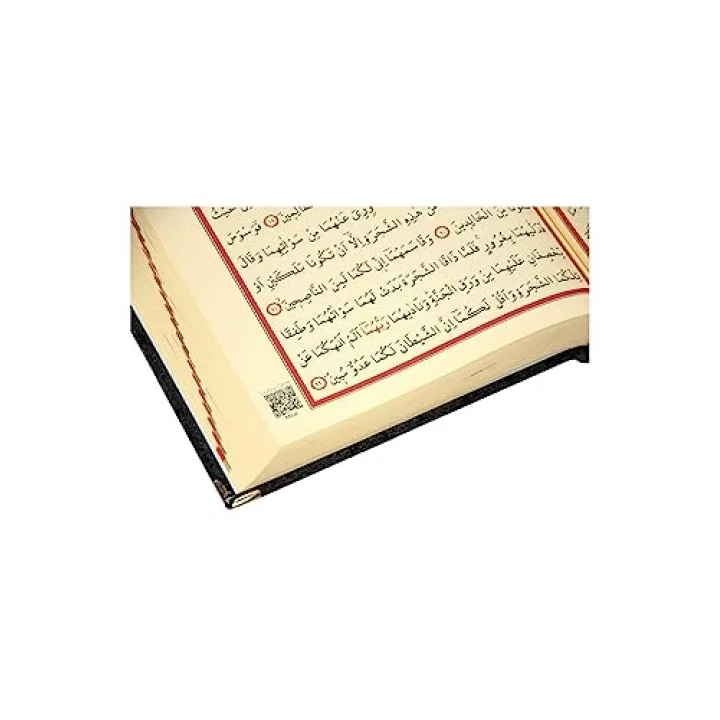 حَيْثُ
فَوَسْوَسَ
وُرِيَ عَنْهُمَا مِنْ سَوْاٰتِهِمَا وَقَالَ
هٰذِهِ الشَّجَرَةِ اِلَّٓا اَنْ تَكُونَا مَلَكَيْنِ اَوْ
تَكُونَا مِنَ الْخَالِدِينَ ٢٠ وَقَاسَمَهُمَٓا اِنِّي لَكُمَا لَمِنَ النَّاصِحِينَ ٢١
فَدَلّٰيهُمَا بِغُرُورٍ فَلَمَّا ذَاقَا الشَّجَرَةَ بَدَتْ لَهُمَا سَوْاٰتُهُمَا وَطَفِقَا
يَخْصِفَانِ عَلَيْهِمَا مِنْ وَرَقِ الْجَنَّةِ وَنَادٰيهُمَا رَبُّهُمَٓا اَلَمْ اَنْهَكُمَا عَنْ
تِلْكُمَا الشَّجَرَةِ وَاَقُلْ لَكُمَٓا اِنَّ الشَّيْطَانَ لَكُمَا عَدُوٌّ مُبِينٌ ٢٢